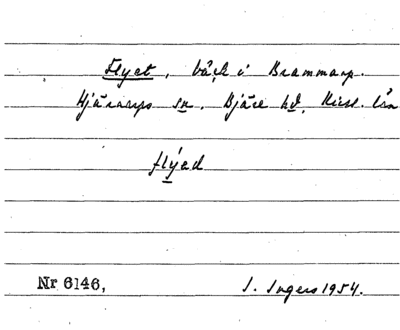 Flyet, bäck i Brammarp.
Hjärnarps sn. Bjäre hd, Krist. län
flýəd
Nr 6146, I. Ingers 1954.